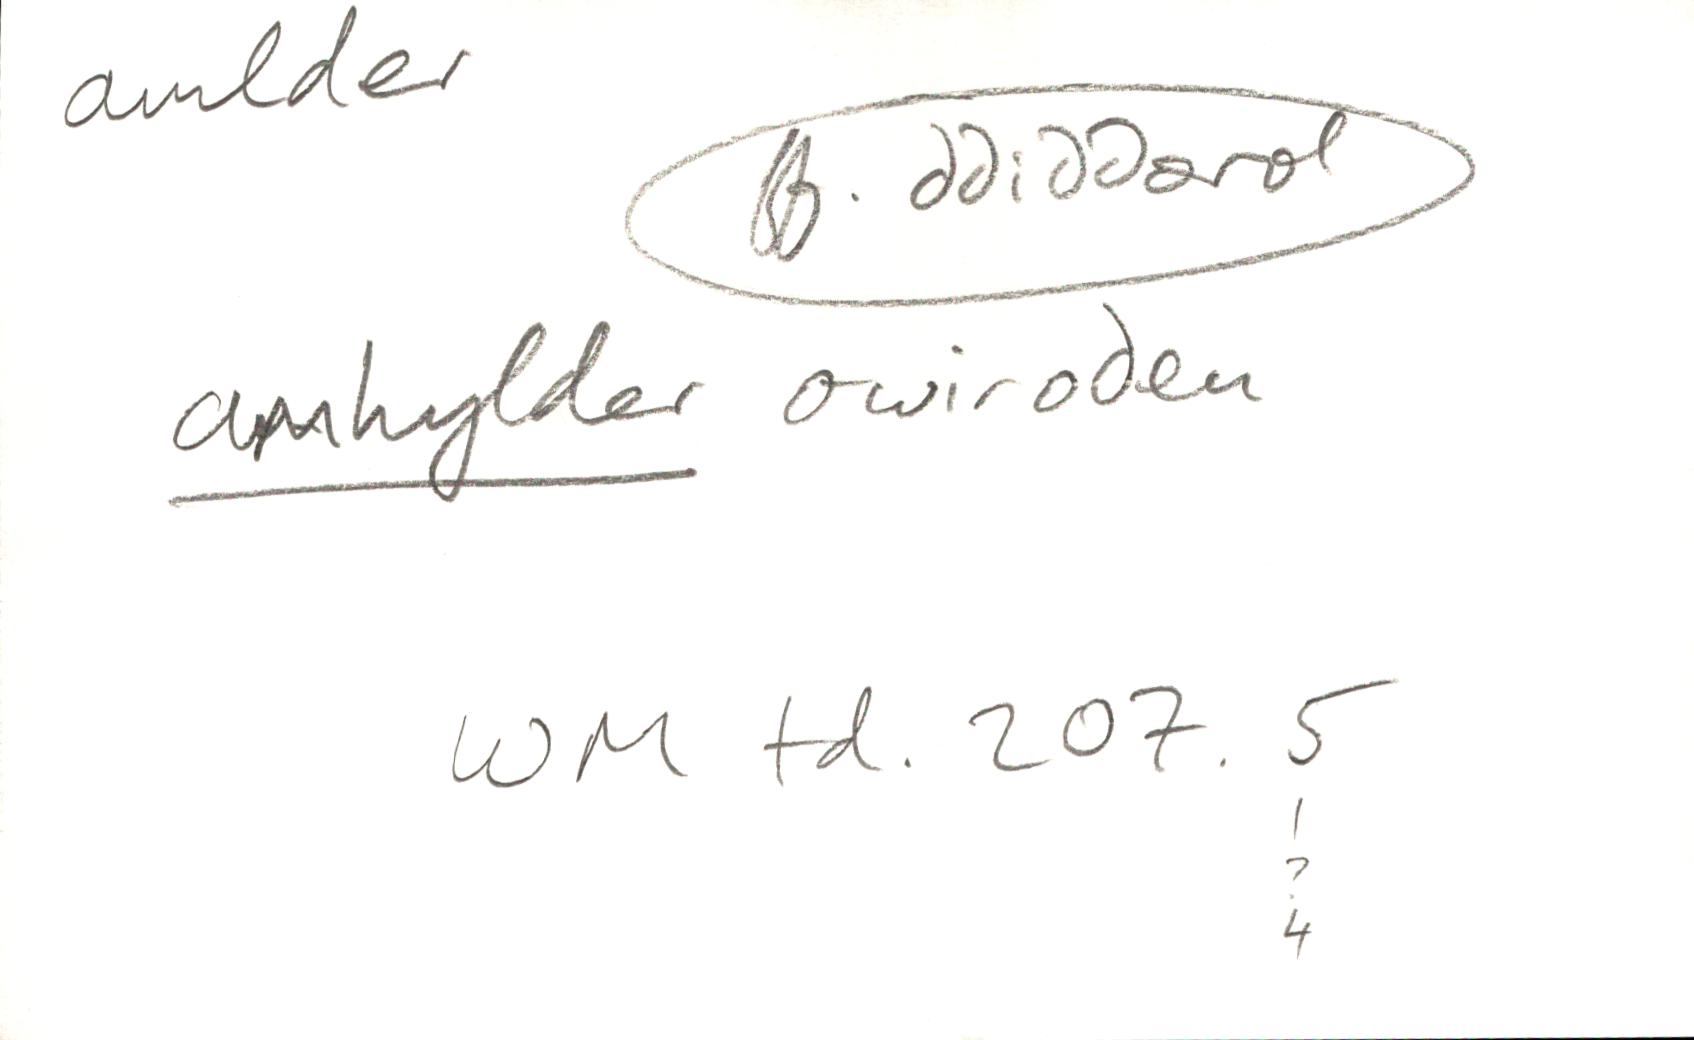 amlder
ff. ddiddarol
amhylder owiroden
WM td. 207. 5
1
?
4